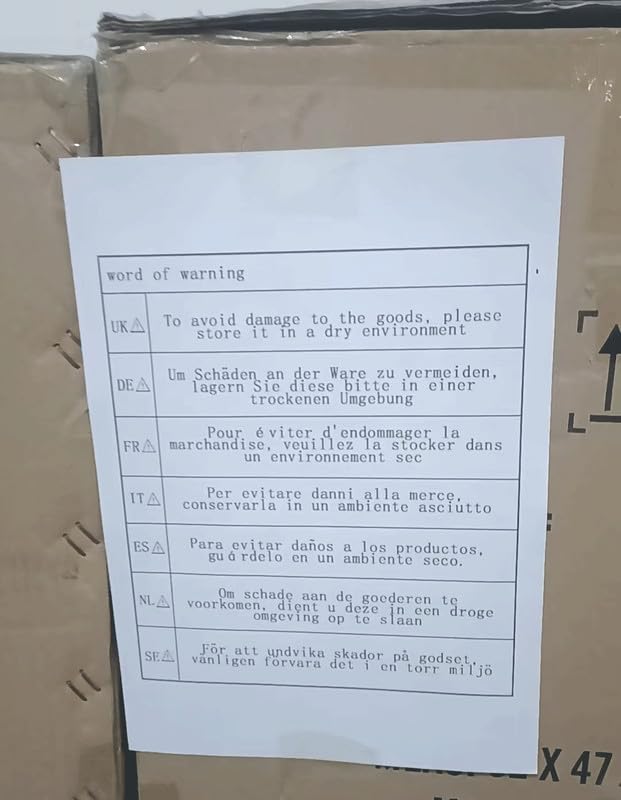 word of warning
UK⚠ To avoid damage to the goods, please
store it in a dry environment
DE⚠ Um Schäden an der Ware zu vermeiden,
lagern Sie diese bitte in einer
trockenen Umgebung
FR⚠ Pour éviter d'endommager la
marchandise, veuillez la stocker dans
un environnement sec
IT⚠ Per evitare danni alla merce,
conservarla in un ambiente asciutto
ES⚠ Para evitar daños a los productos,
guárdelo en un ambiente seco.
NL⚠ Om schade aan de goederen te
voorkomen, dient u deze in een droge
omgeving op te slaan
SE⚠ För att undvika skador på godset,
vänligen förvara det i en torr miljö
X 47